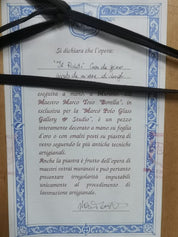 Si dichiara che l'opera:
eseguita a mano a
Maestro Marco Toso Borella", in
esclusiva per la "Marco Polo Glass
Gallery & Studio", è un pezzo
interamente decorato a mano su foglia
d'oro e con smalti posti su piastra di
vetro seguendo le più antiche tecniche
artigianali.
Anche la piastra è frutto dell'opera di
maestri vetrai muranesi e può pertanto
presentare irregolarità imputabili
unicamente al procedimento di
lavorazione artigianale.